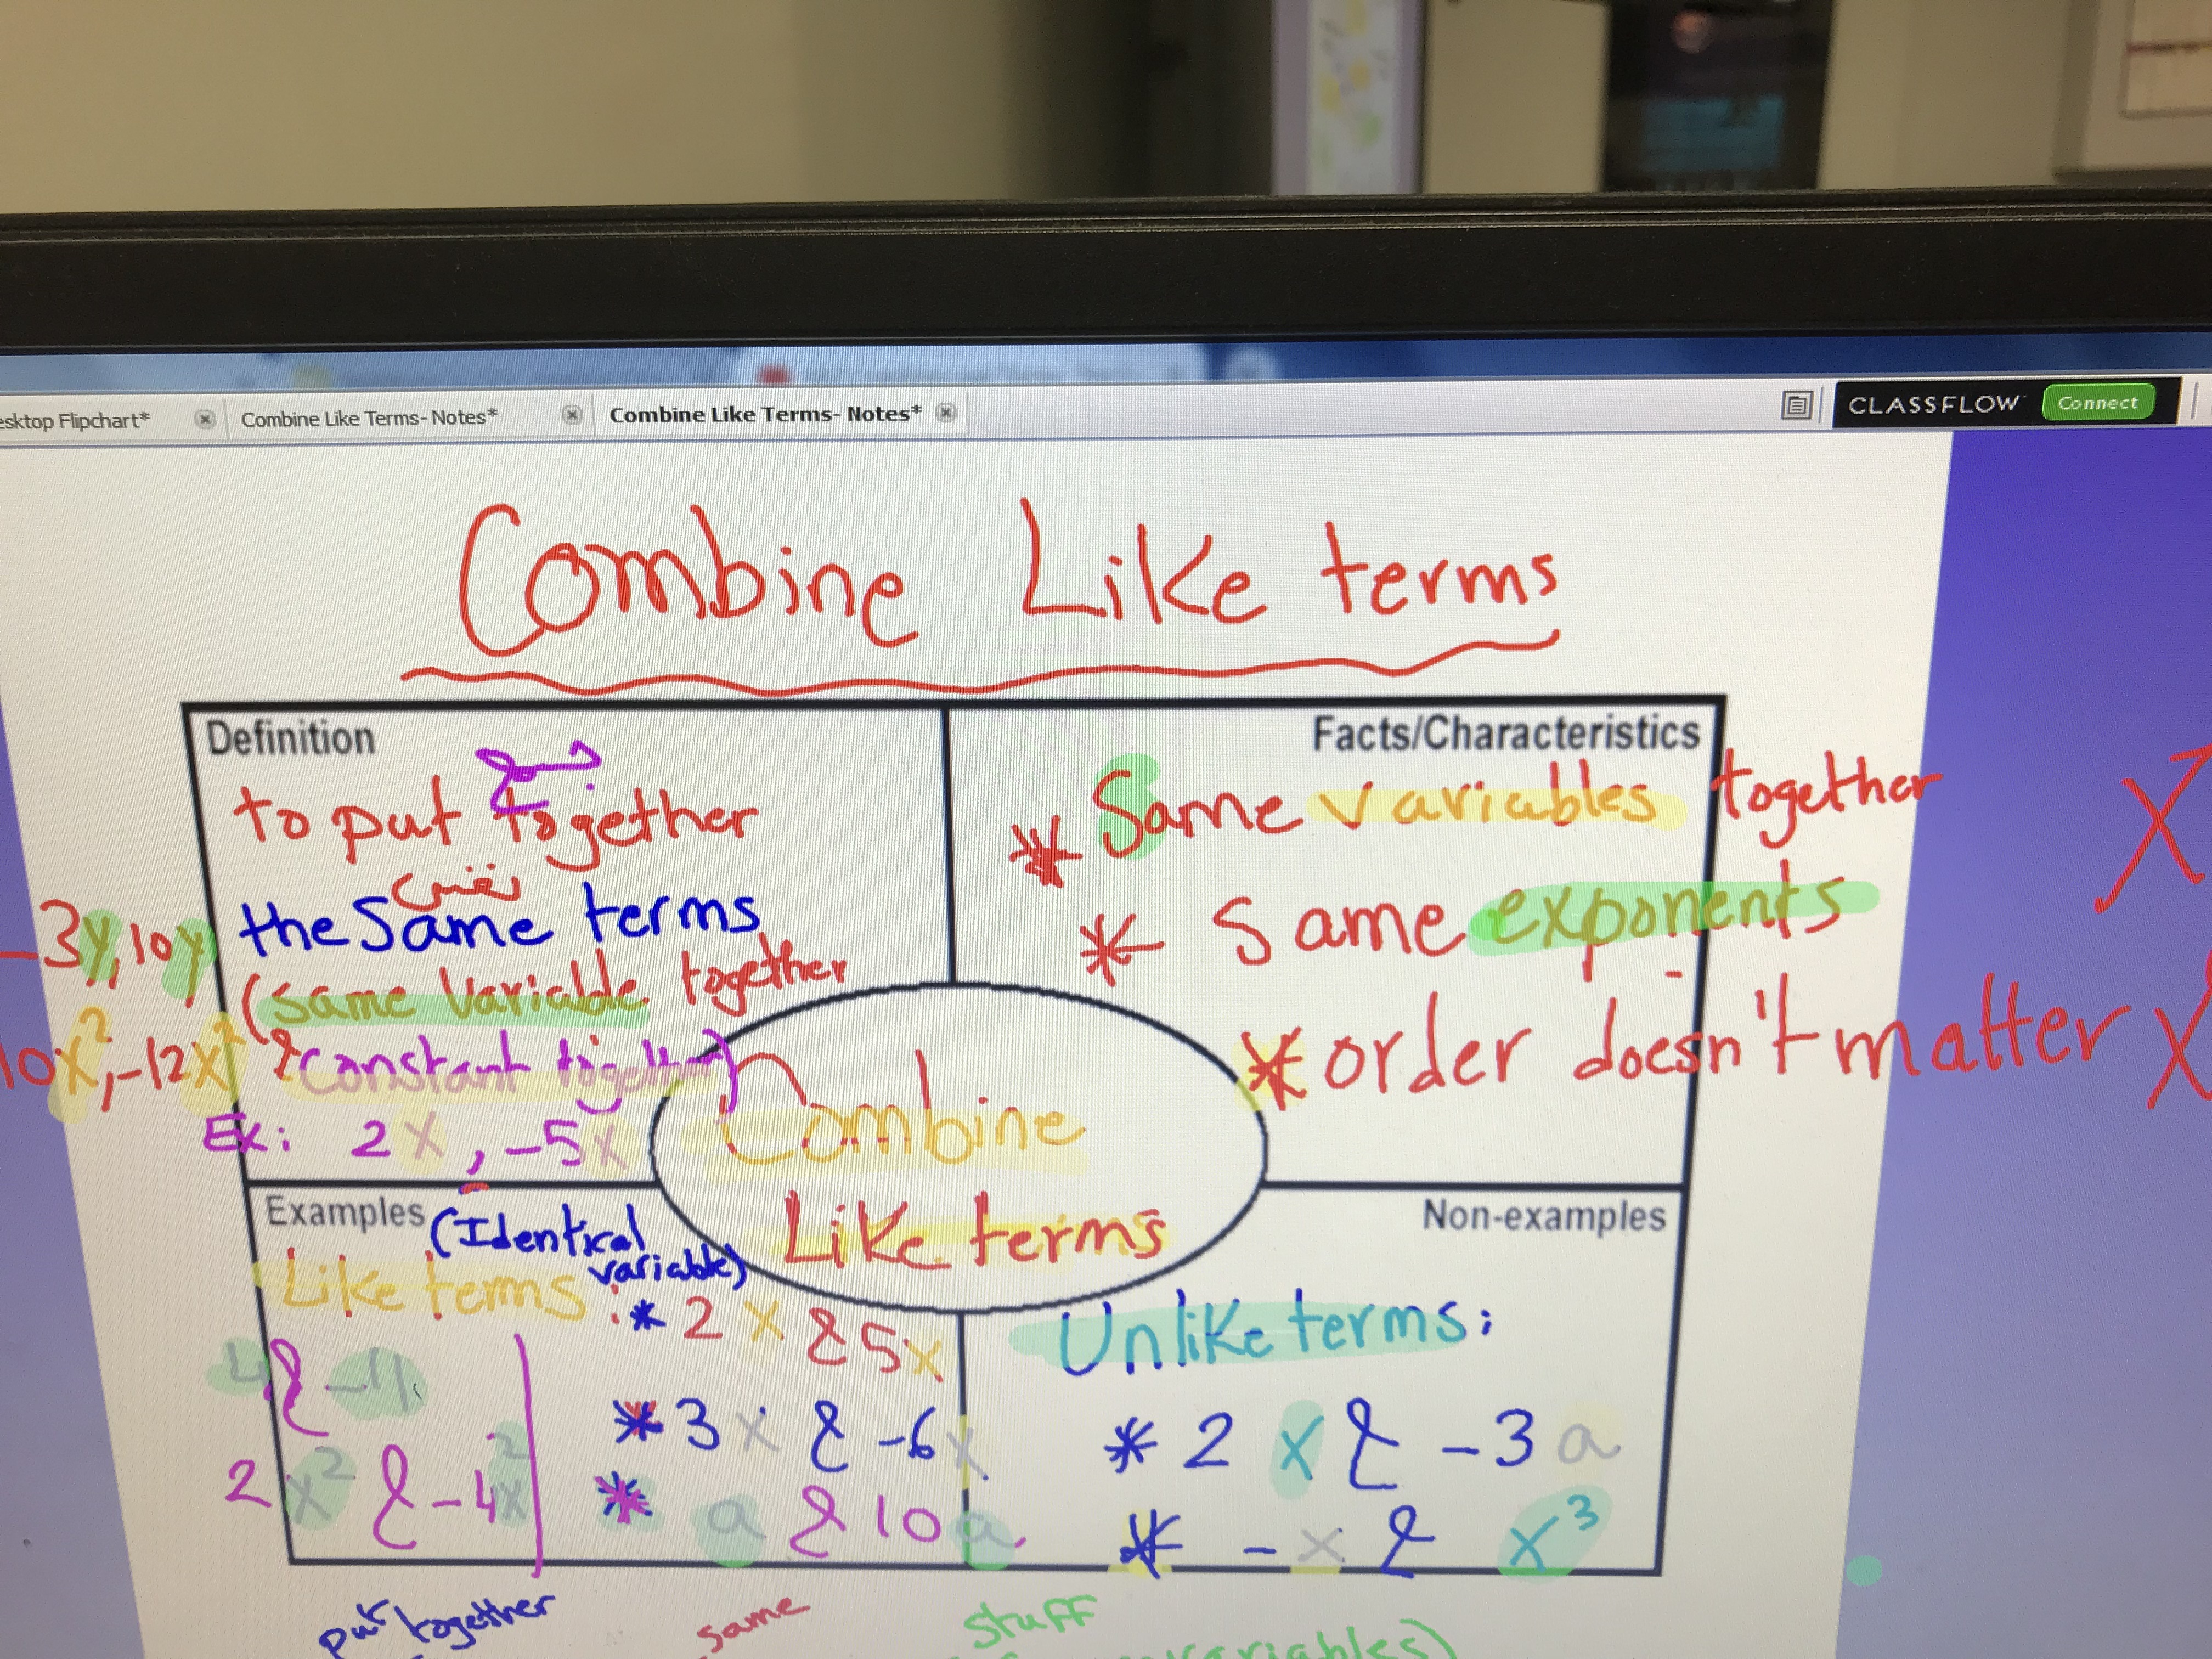 esktop Flipchart*
Combine Like Terms- Notes*
Combine Like Terms- Notes*
CLASSFLOW
Connect
Combine Like terms
Definition
to put together
the Same terms
(same variable together
& constant together)
Ex: 2x, -5x
-3y, 10y
10x², -12x²
Facts/Characteristics
* Same variables together
* Same exponents
* order doesn't matter
x
x
Combine
Like terms
Examples
(Identical
variable)
Like terms:
* 2x & 5x
* 3x & -6x
* a & 10a
4 & -11
2x² & -4x²
Non-examples
Unlike terms:
* 2x & -3a
* -x & x³
put together
same
stuff
variables)